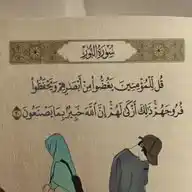 سُورَةُ النُّورِ
قُل لِّلْمُؤْمِنِينَ يَغُضُّوا۟ مِنْ أَبْصَٰرِهِمْ وَيَحْفَظُوا۟
فُرُوجَهُمْ ذَٰلِكَ أَزْكَىٰ لَهُمْ إِنَّ ٱللَّهَ خَبِيرٌۢ بِمَا يَصْنَعُونَ ٣٠